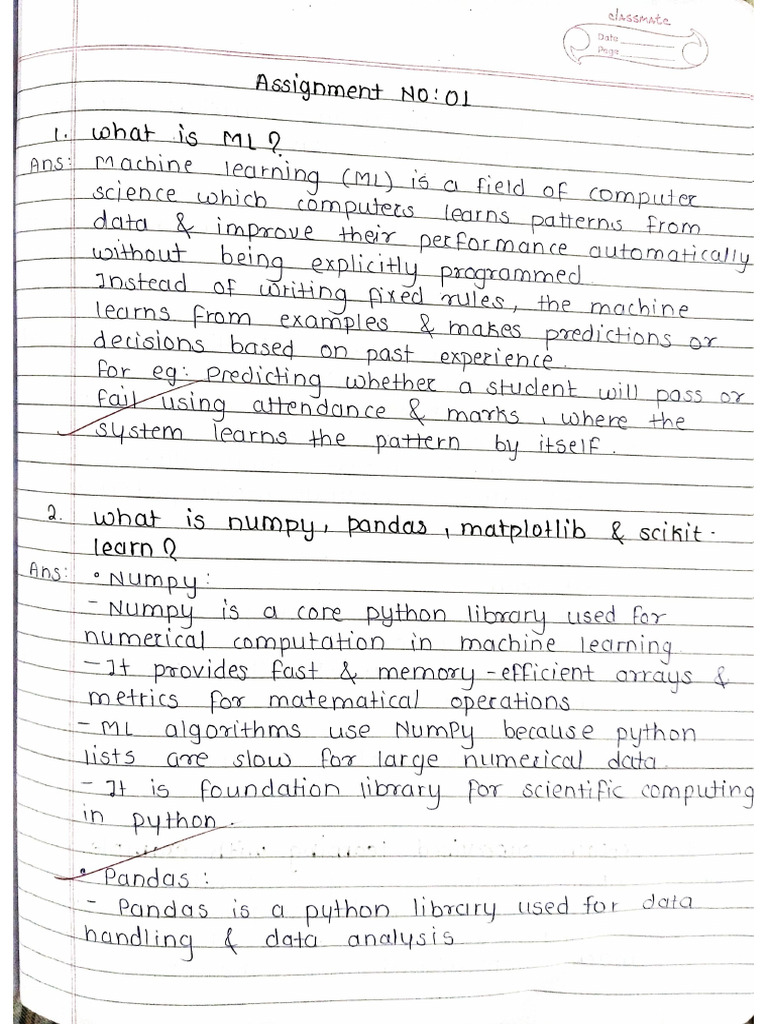 classmate
Date
Page
Assignment NO: 01
1. What is ML?
Ans: Machine learning (ML) is a field of computer
science which computers learns patterns from
data & improve their performance automatically
without being explicitly programmed.
Instead of writing fixed rules, the machine
learns from examples & makes predictions or
decisions based on past experience.
for eg: predicting whether a student will pass or
fail using attendance & marks, where the
system learns the pattern by itself.
2. What is numpy, pandas, matplotlib & scikit-
learn?
Ans: • Numpy:
- Numpy is a core python library used for
numerical computation in machine learning
- It provides fast & memory-efficient arrays &
metrics for matematical operations
- ML algorithms use NumPy because python
lists are slow for large numerical data.
- It is foundation library for scientific computing
in python.
• Pandas:
- Pandas is a python library used for data
handling & data analysis